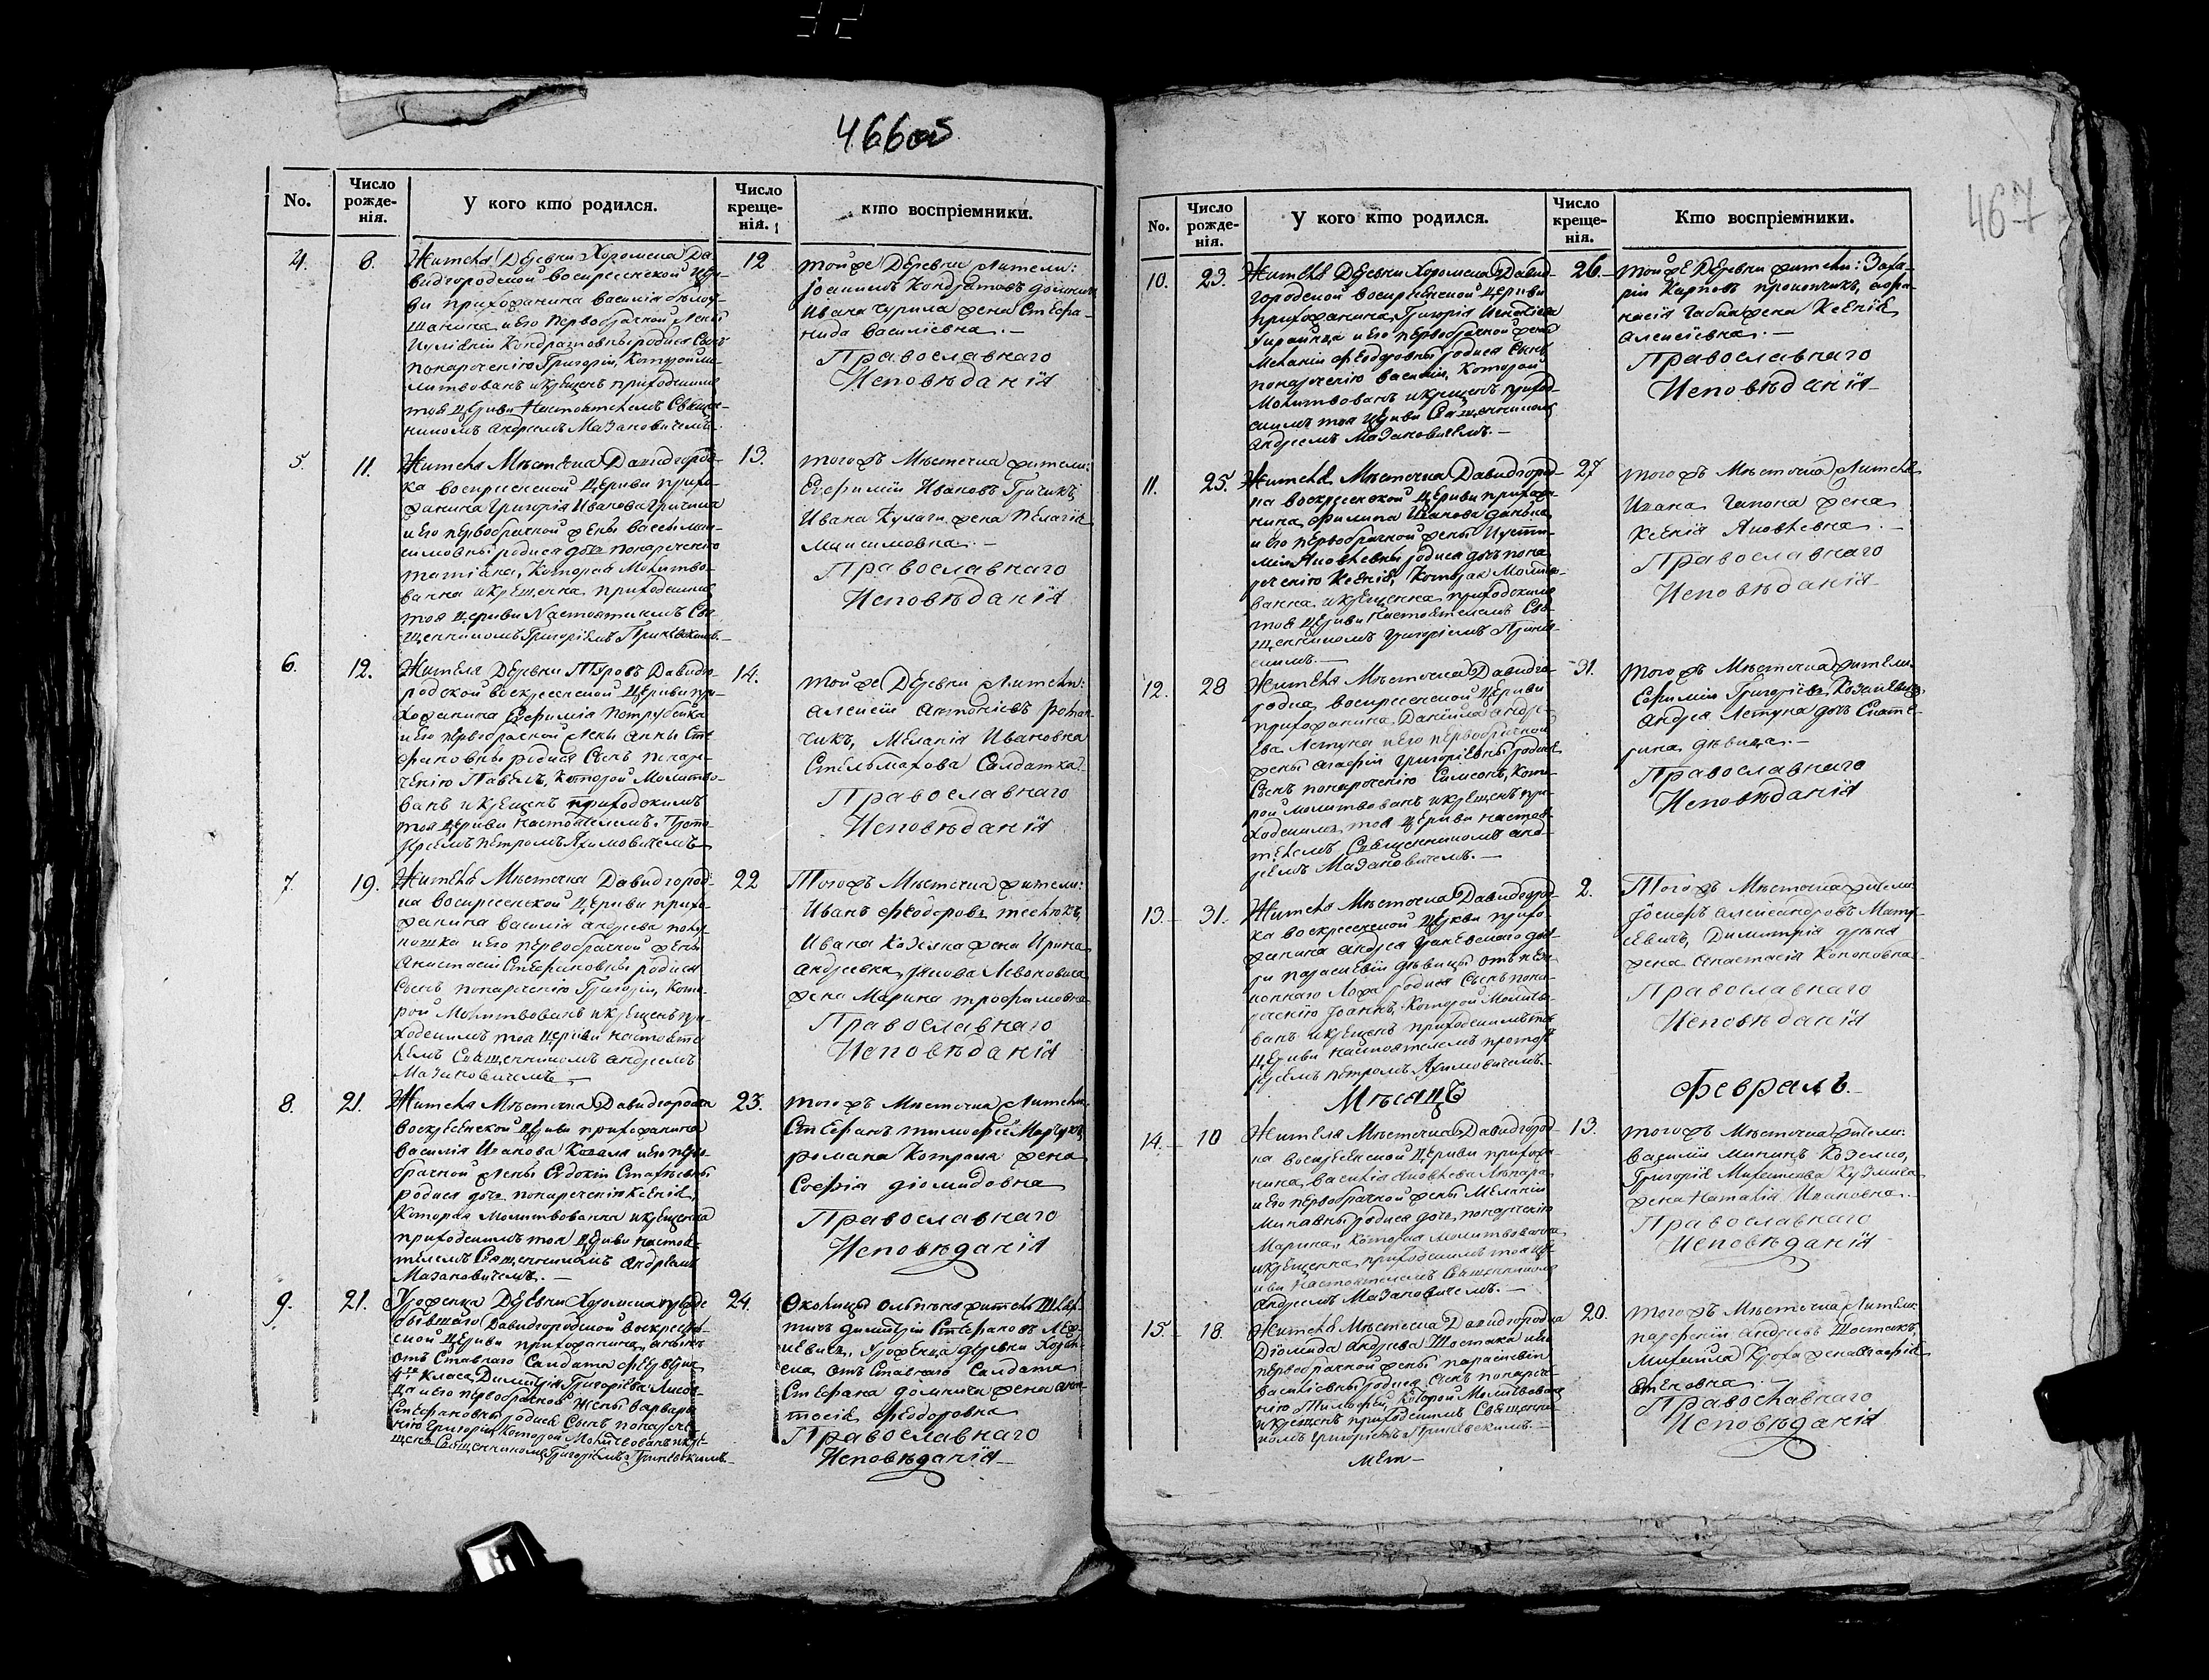 466об
No.
Число рожде-нія.
У кого кто родился.
Число креще-нія.
кто воспріемники.
4.
8.
Жителя Деревни Хоромска Да-
видгородской воскресенской Церк-
ви прихожанина василія
и его Первобрачной жены
Кондратовны родися Сынъ
понаречению Григорій, Которой мо-
литвованъ и крещенъ приходскимъ
тоя церкви Настоятелемъ Священ-
никомъ андреемъ Мазановичемъ.
12
тойже Деревни жители:
Іоакимъ Кондратовъ
Ивана Чурила жена Стефа-
нида василіевна. —
Православнаго
Исповѣданія
5.
11.
Жителя Мѣстечка Давидгород-
ка воскресенской Церкви прихо-
жанина Григорія Иванова Гричика
и его первобрачной жены вассы мак-
симовны родися дочь понаречению
татіана, Которая Молитво-
ванна и крещенна приходскимъ
тоя Церкви Настоятелемъ Свя-
щенникомъ Григоріемъ Гриневскимъ. —
13.
тогожъ Мѣстечка жители:
Евфимій Ивановъ Гричикъ,
Ивана Кулаги жена Пелагія
Максимовна. —
Православнаго
Исповѣданія
6.
12.
Жителя Деревни Туровъ Давидго-
родской воскресенской Церкви при-
хожанина Евфимія Потрубейка
и его первобрачной жены анны Сте-
фановны родися Сынъ понаре-
чению Павелъ, Которой Молитво-
ванъ и крещенъ приходскимъ
тоя Церкви настоятелемъ Прото-
Іереемъ Петромъ Якимовичемъ
14.
тойже Деревни жители:
алексій антоніевъ роман-
чикъ, Меланія Ивановна
Стельмахова Салдатка
Православнаго
Исповѣданія
7.
19.
Жителя Мѣстечка Давидгород-
ка воскресенской Церкви прихо-
жанина василія андреева
и его первобрачной жены
Анастасіи Стефановны родися
Сынъ понаречению Григорій, Кото-
рой Молитвованъ и крещенъ при-
ходскимъ тоя Церкви настояте-
лемъ Священникомъ андреемъ
Мазановичемъ —
22
Тогожъ Мѣстечка жители:
Иванъ Феодоровъ теслюкъ,
Ивана Козляка жена Ирина
андреевна, якова Левоновича
жена Марина трофимовна
Православнаго
Исповѣданія
8.
21.
Жителя Мѣстечка Давидгородка
воскресенской Церкви прихожанина
василія Иванова Коваля и его перво-
брачной жены Евдокіи Стахіевны
родися дочь понаречению Ксенія,
Которая молитвованна и крещенна
приходскимъ тоя Церкви настоя-
телемъ Священникомъ андреемъ
Мазановичемъ. —
23.
тогожъ Мѣстечка жители:
Стефанъ тимофеевъ Марчукъ,
романа Котрала жена
Софія діомидовна
Православнаго
Исповѣданія
9.
21.
Уроженца Деревни Хоромска прежде
бывшаго Давидгородской воскресен-
ской Церкви прихожанина, а нынѣ
отъ Ставнаго Салдата
4го Класа Димитрія Григоріева Лисов-
ца и его первобрачной жены варвары
Стефановны родися Сынъ понарече-
нію Григорій, Которой Молитвованъ и кре-
щенъ Священникомъ Григоріемъ Гриневскимъ. —
24.
Околицы Ольпеня житель Шлях-
тичъ димитрій Стефановъ
Уроженца деревни Хором-
ска отъ Ставнаго Салдата
Стефана жена ана-
тасія Феодоровна
Православнаго
Исповѣданія
467
No.
Число рожде-нія.
У кого кто родился.
Число креще-нія.
Кто воспріемники.
10.
23.
Жителя Деревни Хоромска Давид-
городской воскресенской Церкви
прихожанина Григорія Игнатіева
и его первобрачной жены
Меланіи Феодоровны родися Сынъ
понаречению василій, Которой
Молитвованъ и крещенъ приход-
скимъ тоя Церкви Священникомъ
андреемъ Мазановичемъ. —
26.
тойже Деревни жители: Заха-
рій Карповъ прокопчикъ, афа-
насія жена Ксенія
алексіевна. —
Православнаго
Исповѣданія
11.
25.
Жителя Мѣстечка Давидгород-
ка воскресенской Церкви прихожа-
нина Филипа Иванова
и его первобрачной жены Иусти-
ніи Яковлевны родися дочь пона-
речению Ксенія, Которая Молитво-
ванна и крещенна приходскимъ
тоя Церкви Настоятелемъ Свя-
щенникомъ Григоріемъ Гринев-
скимъ. —
27
тогожъ Мѣстечка жителя
Ивана Гапона жена
Ксенія Яковлевна. —
Православнаго
Исповѣданія
12.
28
Жителя Мѣстечка Давидго-
родка воскресенской Церкви
прихожанина Даніила андре-
ева Летуна и его первобрачной
жены агафіи григоріевны родися
Сынъ понаречению Симеонъ, Кото-
рой молитвованъ и крещенъ при-
ходскимъ тоя Церкви настоя-
телемъ Священникомъ анд-
реемъ Мазановичемъ. —
31.
тогожъ Мѣстечка жители:
Евфимій Григоріевъ
андрея Летуна дочь Екате-
рина дѣвица. —
Православнаго
Исповѣданія
13.
31.
Жителя Мѣстечка Давидгород-
ка воскресенской Церкви прихо-
жанина андрея доче-
ри параскевіи дѣвицы отъ незa-
коннаго Ложа родися Сынъ пона-
речению Іоаннъ, Которой Молитво-
ванъ и крещенъ приходскимъ тоя
Церкви настоятелемъ протоі-
ереемъ Петромъ Якимовичемъ. —
2.
Тогожъ Мѣстечка жители:
Іосифъ александровъ
Димитрія
жена Анастасія Кононовна
Православнаго
Исповѣданія
Мѣсяцъ Февраль. —
14.
10
Жителя Мѣстечка Давидгород-
ка воскресенской Церкви прихожа-
нина василія Яковлева
и его первобрачной жены Меланіи
Минавны родися дочь, понаречению
Марина, Которая молитвованна
и крещенна, приходскимъ тоя Цер-
кви Настоятелемъ Священникомъ
андреемъ Мазановичемъ. —
13.
тогожъ Мѣстечка жители:
василій Мининъ Козелко,
Григорія Кузмича
жена Наталія Ивановна. —
Православнаго
Исповѣданія
15.
18.
Жителя Мѣстечка Давидгородка
Діомида андреева Шостака и его
первобрачной жены параскевіи
василіевны родися Сынъ понарече-
нію Тимофей, Которой Молитвованъ
и крещенъ приходскимъ Священни-
комъ Григоріемъ Гриневскимъ. —
20.
тогожъ Мѣстечка жители:
парфеній андреевъ Шостакъ,
Михаила Крота жена агафія
Православнаго
Исповѣданія